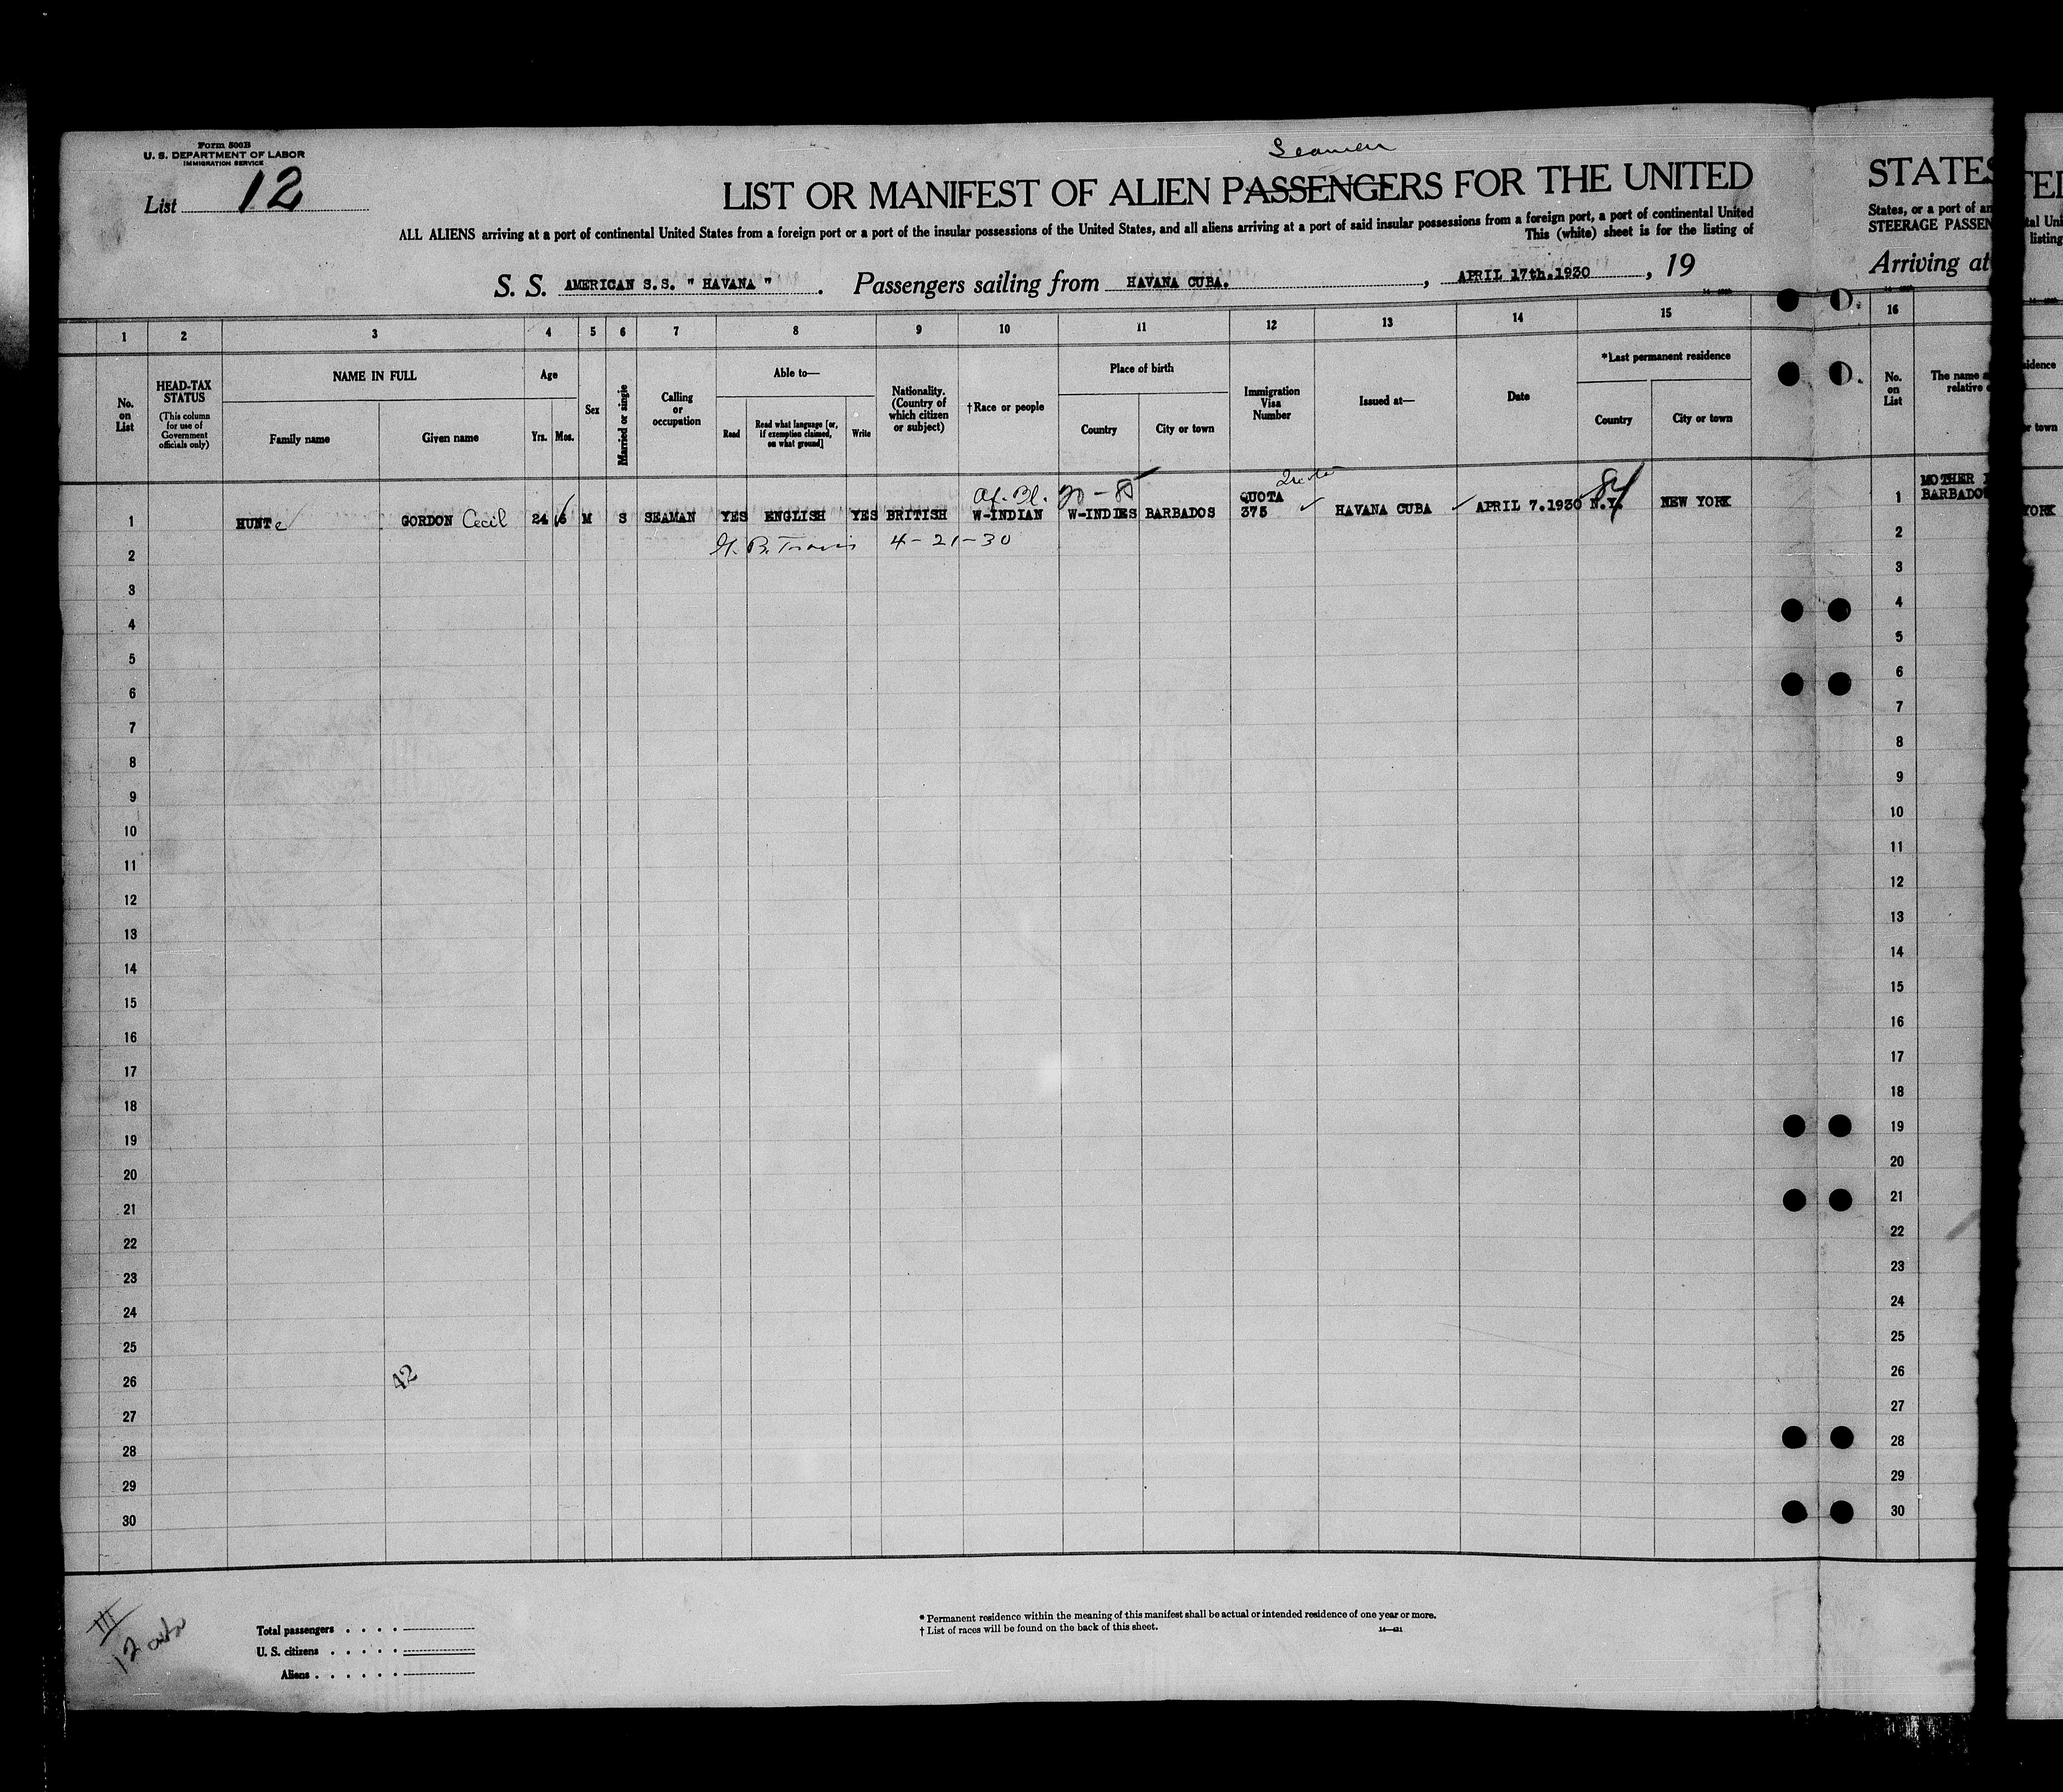 Form 500B
U. S. DEPARTMENT OF LABOR
IMMIGRATION SERVICE
List 12
Seamen
LIST OR MANIFEST OF ALIEN PASSENGERS FOR THE UNITED
ALL ALIENS arriving at a port of continental United States from a foreign port or a port of the insular possessions of the United States, and all aliens arriving at a port of said insular possessions from a foreign port, a port of continental United
This (white) sheet is for the listing of
S. S. AMERICAN S.S. " HAVANA " . Passengers sailing from HAVANA CUBA. , APRIL 17th.1930 , 19
STATES
States, or a port of an
STEERAGE PASSEN
Arriving at
tal Uni
listing
1 2 3 4 5 6 7 8 9 10 11 12 13 14 15 16
No. on List
HEAD-TAX STATUS
(This column for use of Government officials only)
NAME IN FULL
Family name
Given name
Age
Yrs.
Mos.
Sex
Married or single
Calling or occupation
Able to—
Read
Read what language [or, if exemption claimed, on what ground]
Write
Nationality. (Country of which citizen or subject)
†Race or people
Place of birth
Country
City or town
Immigration Visa Number
Issued at—
Date
*Last permanent residence
Country
City or town
No. on List
The name a
relative
sidence
r town
Af. Bl. 20-85
1 HUNTe GORDON Cecil 24 6 M S SEAMAN YES ENGLISH YES BRITISH W-INDIAN W-INDIES BARBADOS QUOTA 375 ✓ HAVANA CUBA ✓ APRIL 7.1930 N.Y. 84 NEW YORK
1 MOTHER
BARBADO
YORK
4-21-30
2 2
3 3
4 4
5 5
6 6
7 7
8 8
9 9
10 10
11 11
12 12
13 13
14 14
15 15
16 16
17 17
18 18
19 19
20 20
21 21
22 22
23 23
24 24
25 25
26 26
27 27
28 28
29 29
30 30
42
III
12
Total passengers . . . .
U. S. citizens . . . . .
Aliens . . . . . .
* Permanent residence within the meaning of this manifest shall be actual or intended residence of one year or more.
† List of races will be found on the back of this sheet.